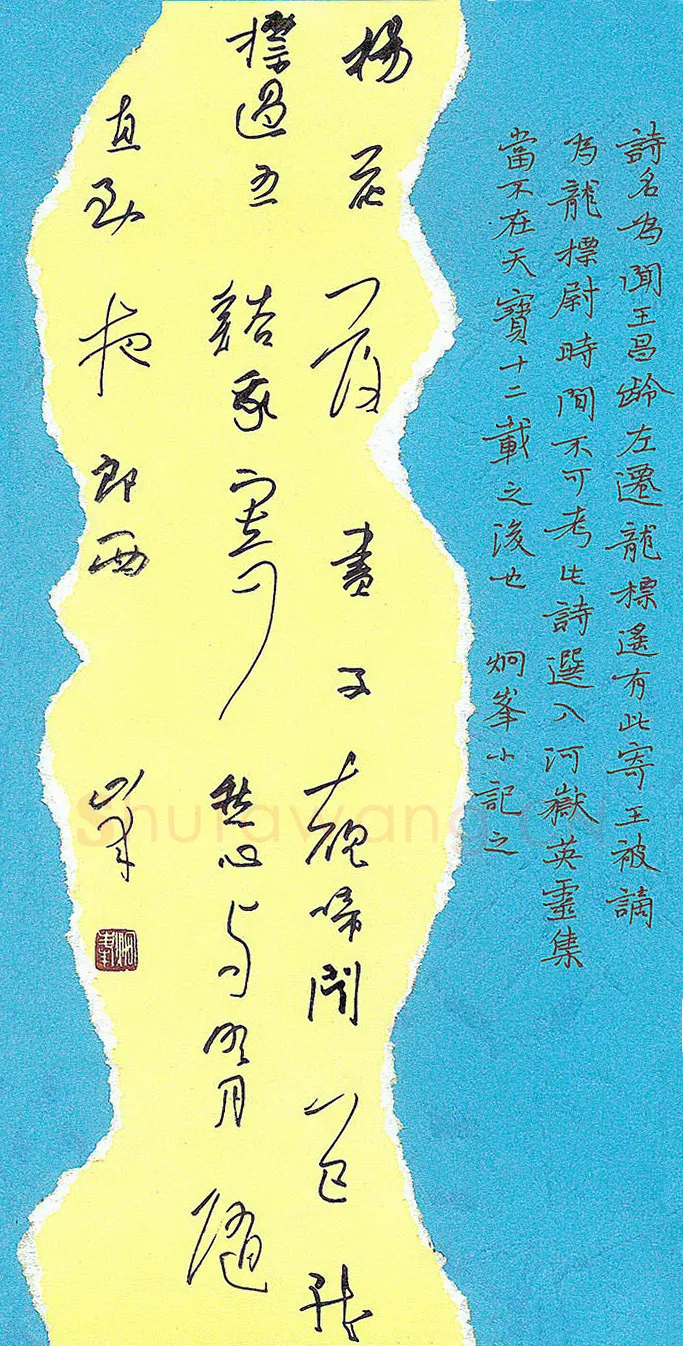 詩名為聞王昌齡左遷龍標遙有此寄王被謫
為龍標尉時間不可考此詩選入河嶽英靈集
當不在天寶十二載之後也 炯峯小記之
楊花落盡子規啼聞道龍
標過五谿我寄愁心與明月隨
直到夜郎西 峯
Shufawang.CN